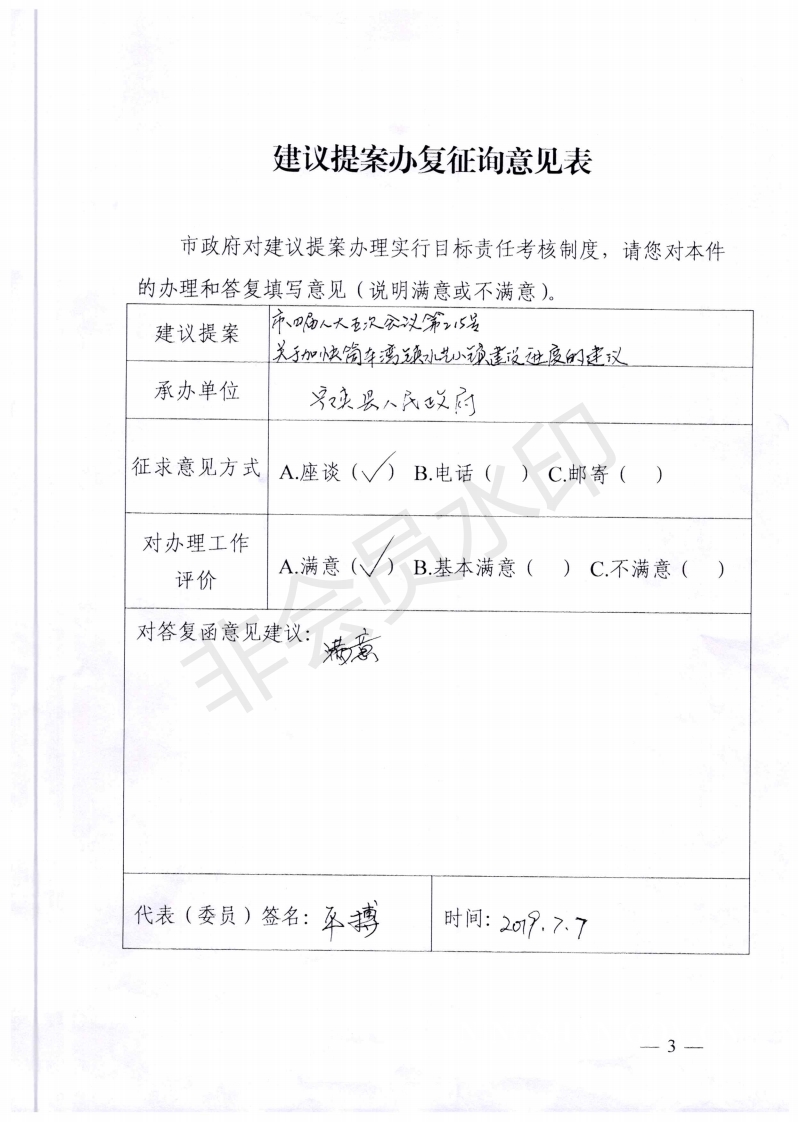 建议提案办复征询意见表
市政府对建议提案办理实行目标责任考核制度，请您对本件
的办理和答复填写意见（说明满意或不满意）。
建议提案
市四届人大五次会议第215号
关于加快筒车湾镇水艺小镇建设进度的建议
承办单位
宁陕县人民政府
征求意见方式
A.座谈（✓） B.电话（ ） C.邮寄（ ）
对办理工作
评价
A.满意（✓） B.基本满意（ ） C.不满意（ ）
对答复函意见建议：
满意
代表（委员）签名：
搏
时间：2019.7.7
— 3 —
非会员水印